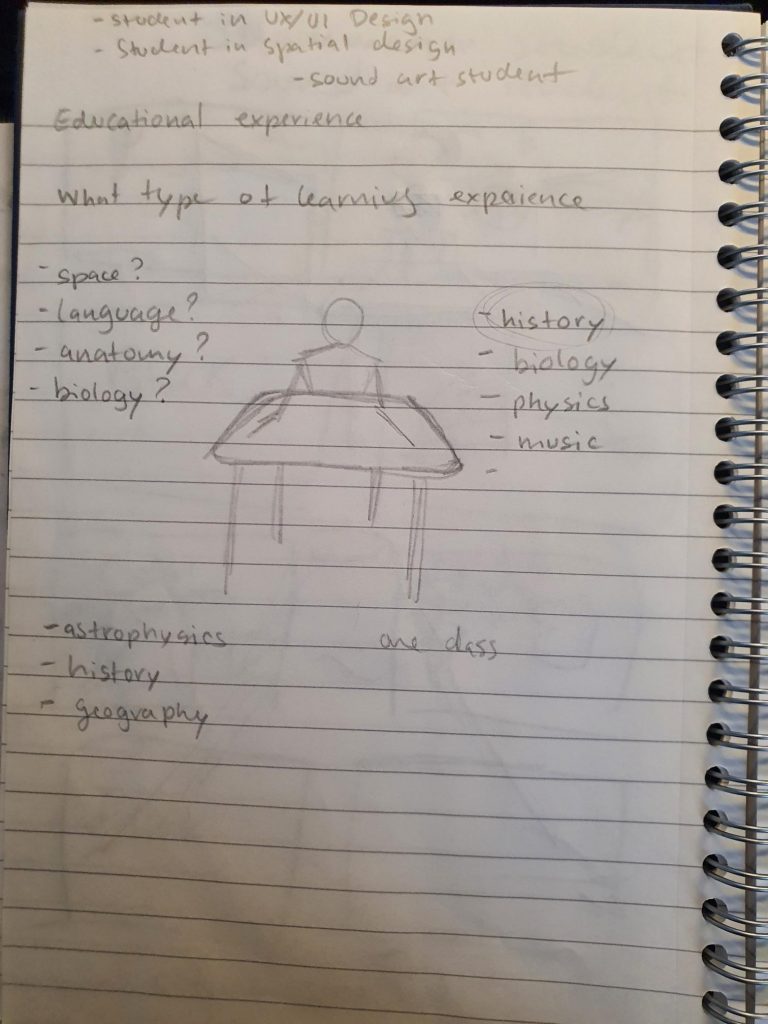 - student in UX/UI Design
- Student in spatial design
- sound art student
Educational experience
What type of learning expaience
- space?
- language?
- anatomy?
- biology?
- history
- biology
- physics
- music
-
- astrophysics
- history
- geography
one class